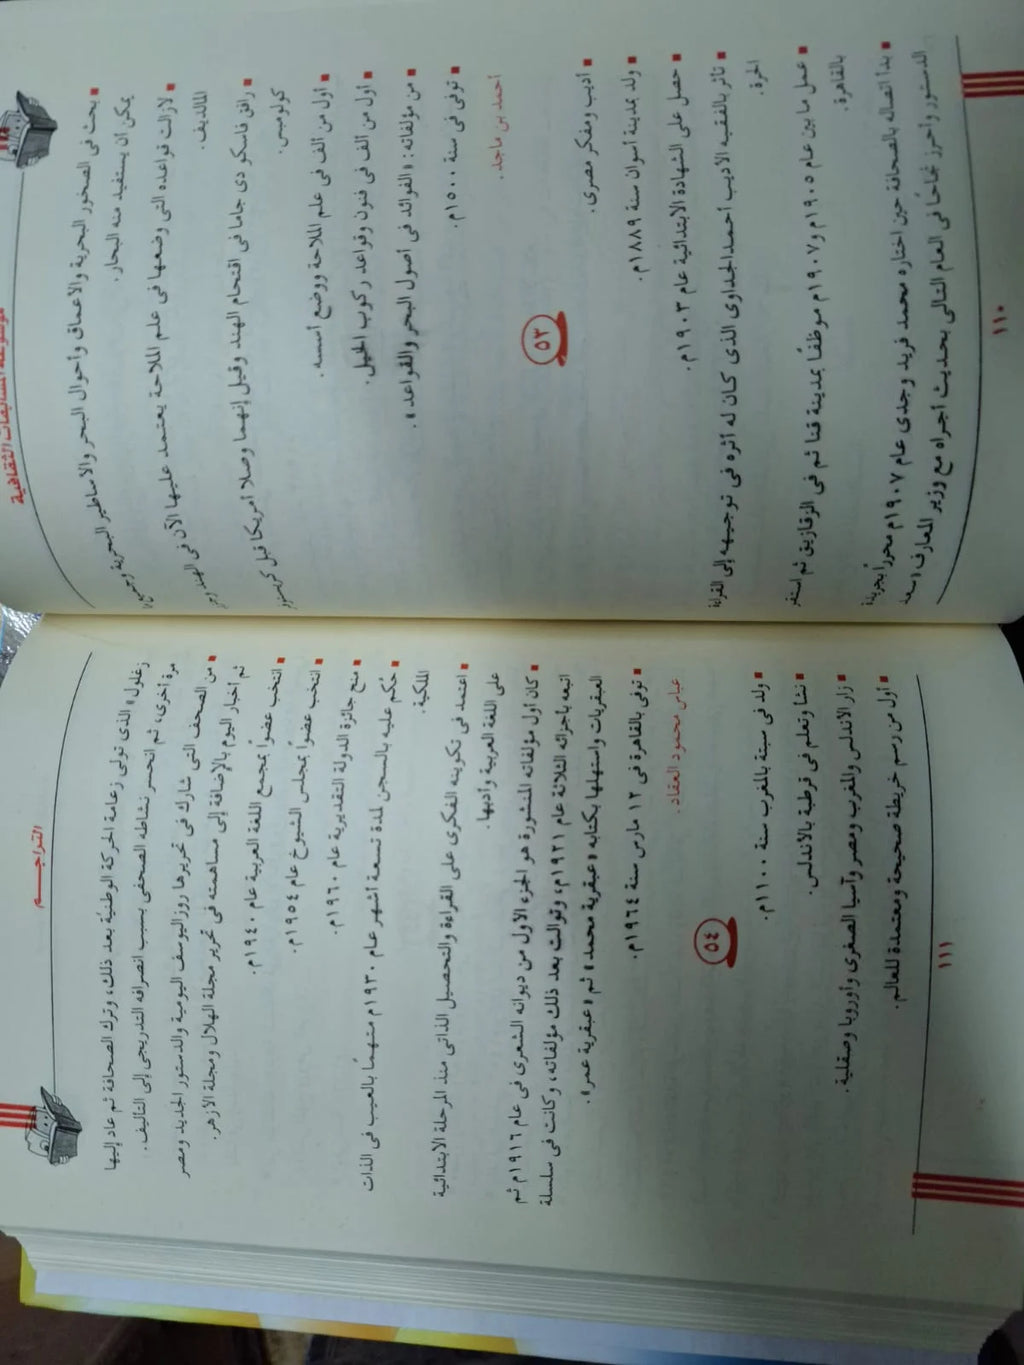 موسوعة المسابقات الثقافية
■ بحث فى الصخور البحرية والأعماق وأحوال البحر والأساطير البحرية وجميع
يمكن أن يستفيد منه البحار.
■ لازالت قواعده التى وضعها فى علم الملاحة يعتمد عليها الآن فى الهند
المالديف.
■ رافق فاسكو دى جاما فى اقتحام الهند وقيل إنهما وصلا أمريكا قبل
كولومبس.
■ أول من ألف فى علم الملاحة ووضع أسسه.
■ أول من ألف فى فنون وقواعد ركوب الخيل.
■ من مؤلفاته: «الفوائد فى أصول البحر والقواعد».
■ توفى فى سنة ١٥٠٠م.
أحمد بن ماجد.
٥٣
■ أديب ومفكر مصرى.
■ ولد بمدينة أسوان سنة ١٨٨٩م.
■ حصل على الشهادة الابتدائية عام ١٩٠٣م.
■ تأثر بالفقيه الأديب أحمد الجداوى الذى كان له أثره فى توجيهه إلى القراءة
الحرة.
■ عمل ما بين عام ١٩٠٥م و١٩٠٧م موظفًا بمدينة قنا ثم فى الزقازيق ثم استقر
بالقاهرة.
■ بدأ اتصاله بالصحافة حين اختاره محمد فريد وجدى عام ١٩٠٧م محررًا بجريدة
الدستور وأحرز نجاحًا فى العام التالى بحديث أجراه مع وزير المعارف «سعد
١١٠
التراجـــم
زغلول» الذى تولى زعامة الحركة الوطنية بعد ذلك، وترك الصحافة ثم عاد إليها
مرة أخرى، ثم انحسر نشاطه الصحفى بسبب انصرافه التدريجى إلى التأليف.
■ من الصحف التى شارك فى تحريرها روز اليوسف اليومية والدستور الجديد ومصر
ثم أخبار اليوم بالإضافة إلى مساهمته فى تحرير مجلة الهلال ومجلة الأزهر.
■ انتخب عضوًا بمجمع اللغة العربية عام ١٩٤٠م.
■ انتخب عضوًا بمجلس الشيوخ عام ١٩٥٤م.
■ منح جائزة الدولة التقديرية عام ١٩٦٠م.
■ حُكم عليه بالسجن لمدة تسعة أشهر عام ١٩٣٠م متهمًا بالعيب فى الذات
الملكية.
■ اعتمد فى تكوينه الفكرى على القراءة والتحصيل الذاتى منذ المرحلة الابتدائية
على اللغة العربية وأدبها.
■ كان أول مؤلفاته المنشورة هو الجزء الأول من ديوانه الشعرى فى عام ١٩١٦م ثم
أتبعه بأجزائه الثلاثة عام ١٩٢١م، وتوالت بعد ذلك مؤلفاته، وكانت فى سلسلة
العبقريات واستهلها بكتابه «عبقرية محمد» ثم «عبقرية عمر».
■ توفى بالقاهرة فى ١٢ مارس سنة ١٩٦٤م.
عباس محمود العقاد.
٥٤
■ ولد فى سبتة بالمغرب سنة ١١٠٠م.
■ نشأ وتعلم فى قرطبة بالأندلس.
■ زار الأندلس والمغرب ومصر وآسيا الصغرى وأوروبا وصقلية.
■ أول من رسم خريطة صحيحة ومعتمدة للعالم.
١١١